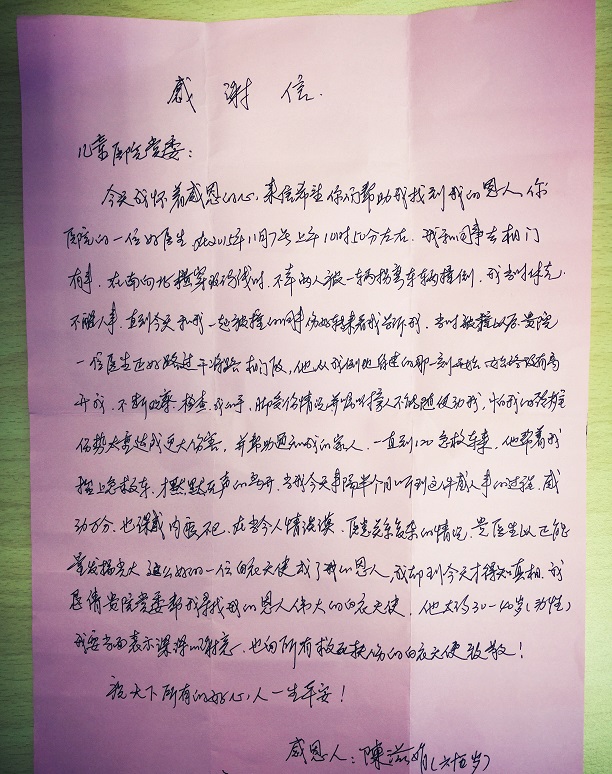 感谢信.
儿童医院党委：
今天我怀着感恩的心，来信希望你们帮助我找到我的恩人，你
医院的一位好医生，在2015年11月7号上午10时50分左右，我和同事去相门
有事，在南向北横穿时，不幸两人被一辆拐弯车辆撞倒，我当时休克
不醒人事，直到今天和我一起被撞的同事伤好转来看我告诉我，当时被撞以后贵院
一位医生正好路过干将路相门段，他从我倒地昏迷的那一刻开始，始终没有离
开我，不断观察，检查，我的手，脚受伤情况并嘱咐撞人不能随便动我，怕我的颈椎
伤势太重造成更大伤害，并帮助通知我的家人，一直到120急救车来，他帮着我
抬上急救车，才默默无声的离开，当我今天事隔半个月听到这件感人事的过程，感
动万分，也深感内疚不已，在当今人情淡漠，医患关系复杂的情况，贵医生以正能
量发扬光大，这么好的一位白衣天使成了我的恩人，我却到今天才得知真相，我
恳请贵院党委帮我寻找我的恩人伟大的白衣天使，他大约30-40岁（男性）
我要当面表示深深的谢意，也向所有救死扶伤的白衣天使致敬！
祝天下所有的好心人一生平安！
感恩人：陳滋娟（六十五岁）